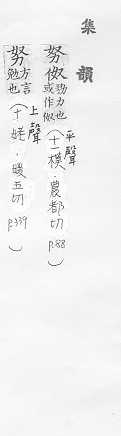 集韻
努伮 努力也 或作伮 平聲(十一模·農都切 P.88)
努 方言 勉也 上聲(十姥·暖五切 P.339)